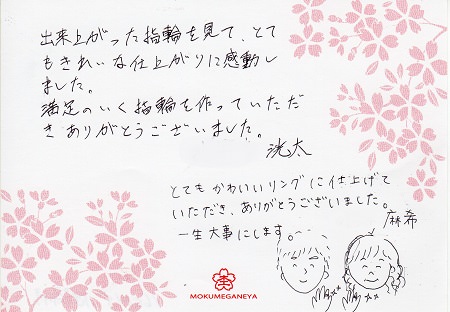 出来上がった指輪を見て、とて
もきれいな仕上がりに感動し
ました。
満足のいく指輪を作っていただ
きありがとうございました。
洸太
とてもかわいいリングに仕上げて
いただき、ありがとうございました。
一生大事にします。
麻希
MOKUMEGANEYA